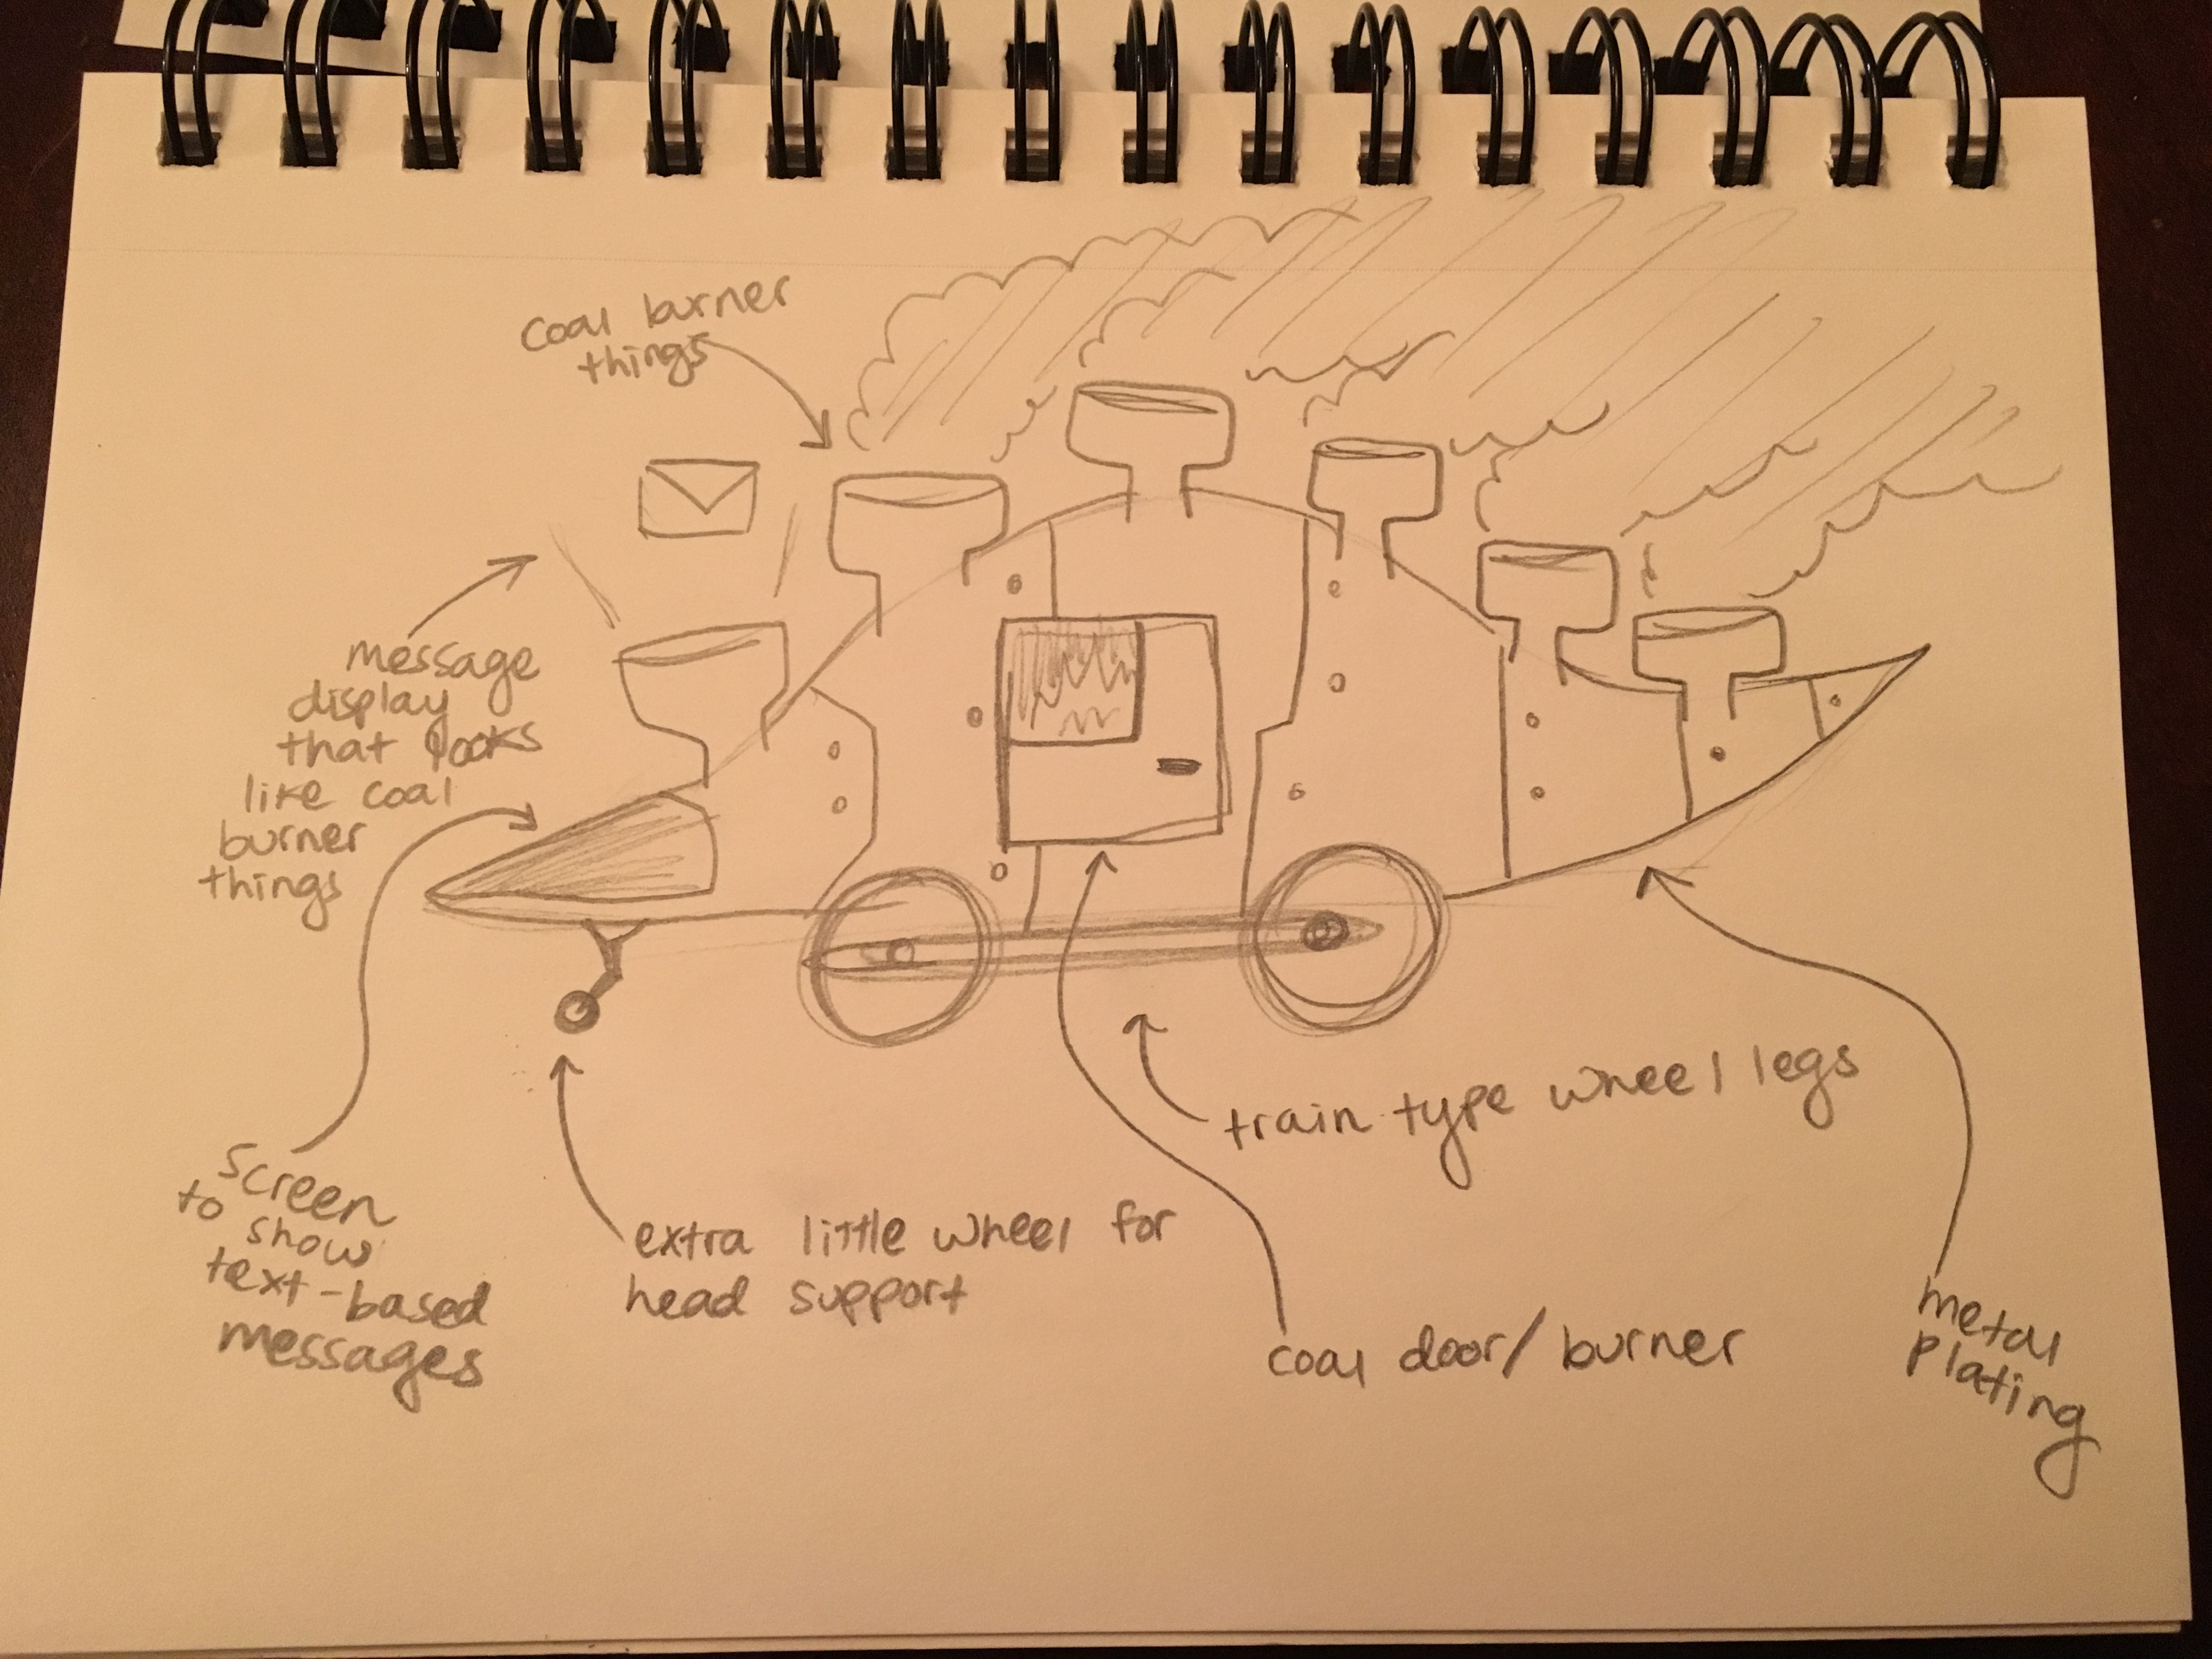 coal burner
things
message
display
that looks
like coal
burner
things
screen
to show
text-based
messages
extra little wheel for
head support
train type wheel legs
coal door/burner
metal
plating